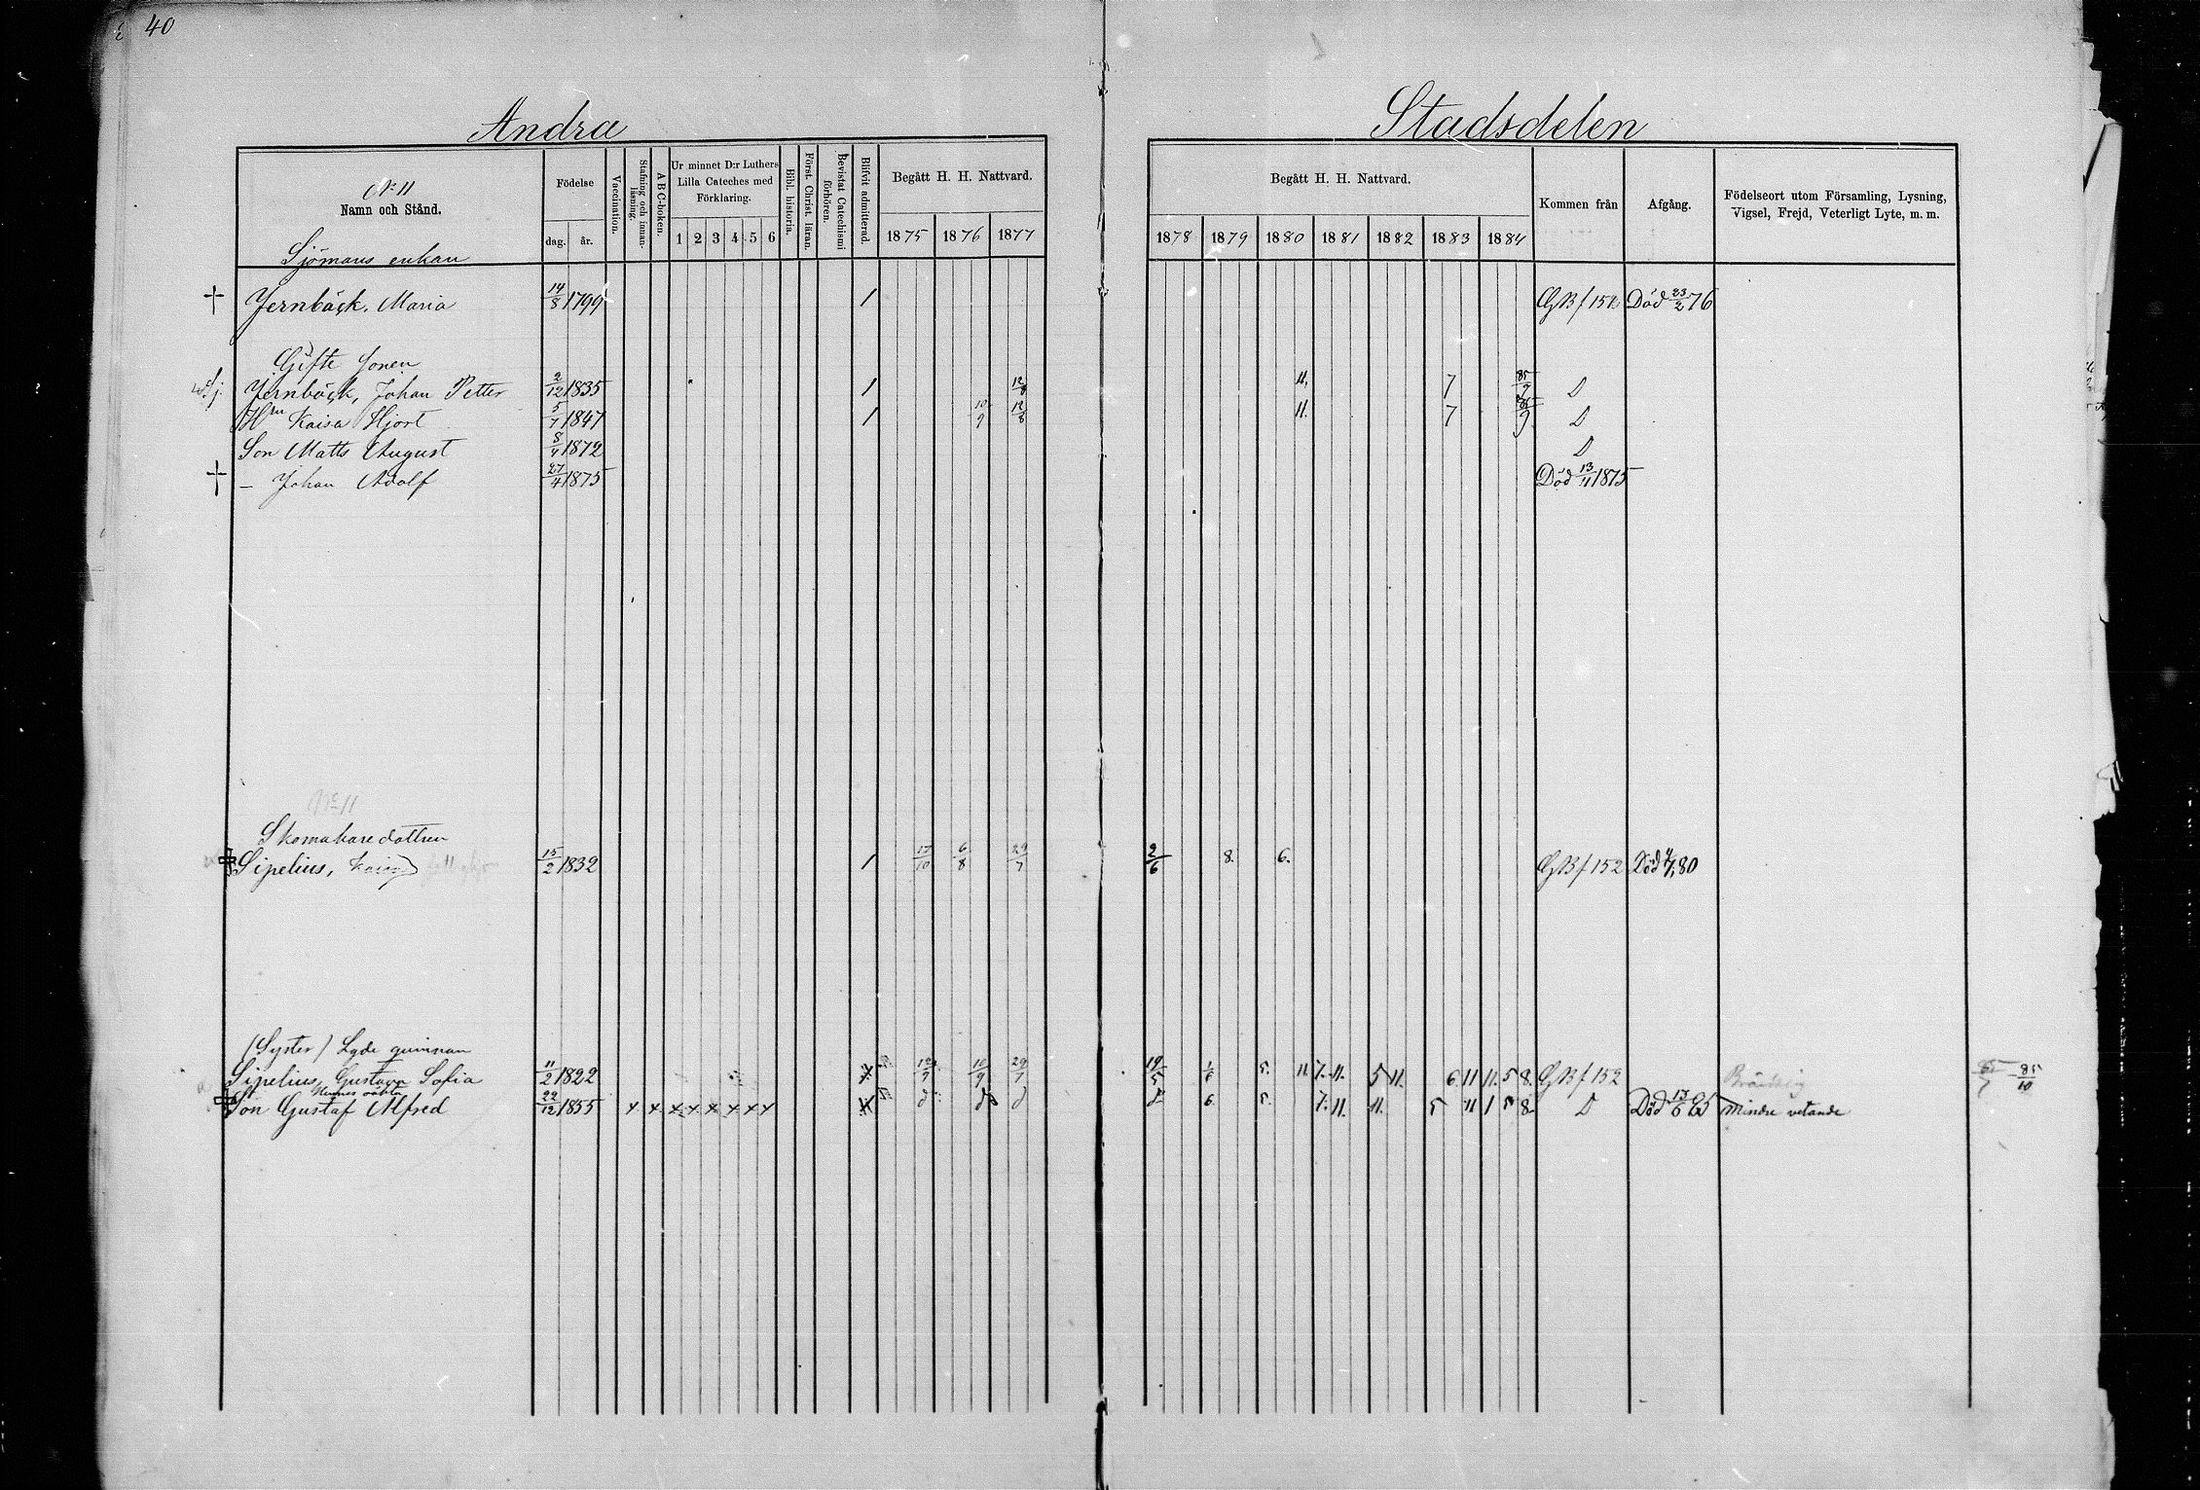 40
Andra Stadsdelen
No 11
Namn och Stånd.
Födelse
dag. år.
Vaccination.
Stafning och innanläsning.
A B C-boken.
Ur minnet D:r Luthers Lilla Cateches med Förklaring.
1 2 3 4 5 6
Bibl. historia.
Först. Christ. läran.
Bevistat Catechismi förhören.
Blifvit admitterad.
Begått H. H. Nattvard.
1875 1876 1877
Begått H. H. Nattvard.
1878 1879 1880 1881 1882 1883 1884
Kommen från
Afgång.
Födelseort utom Församling, Lysning, Vigsel, Frejd, Veterligt Lyte, m. m.
Sjömans enkan
† Jernbäck, Maria 14/8 1799 1 GB f 151 Död 23/2 76
Gifte sonen
Jernbäck, Johan Petter 2/12 1835 1 12/8 11. 7 85/9 D
Hru Kaisa Hjort 5/7 1847 1 10/9 12/8 11. 7 85/9 D
Son Matts August 8/4 1872 D
† – Johan Adolf 27/4 1875 Död 13/11 1875
No 11
Skomakaredottren
Sipelius, Kaisa 15/2 1832 1 17/10 6/8 29/7 2/6 8. 6. GB f 152 Död 80
(Syster) Legde quinnan
Sipelius, Gustava Sofia 11/2 1822 12/9 10/9 29/7 19/5 1/6 5. 11. 7. 11. 5 11. 6 11 11. 5 8. GB f 152 Bräcklig 85/10
Hennes oäkta
Son Gustaf Alfred 22/12 1855 x x x x x x x x d d d d 6. 5. 7. 11. 11. 5 11 1 5 8 D Död 13/6 85 mindre vetande